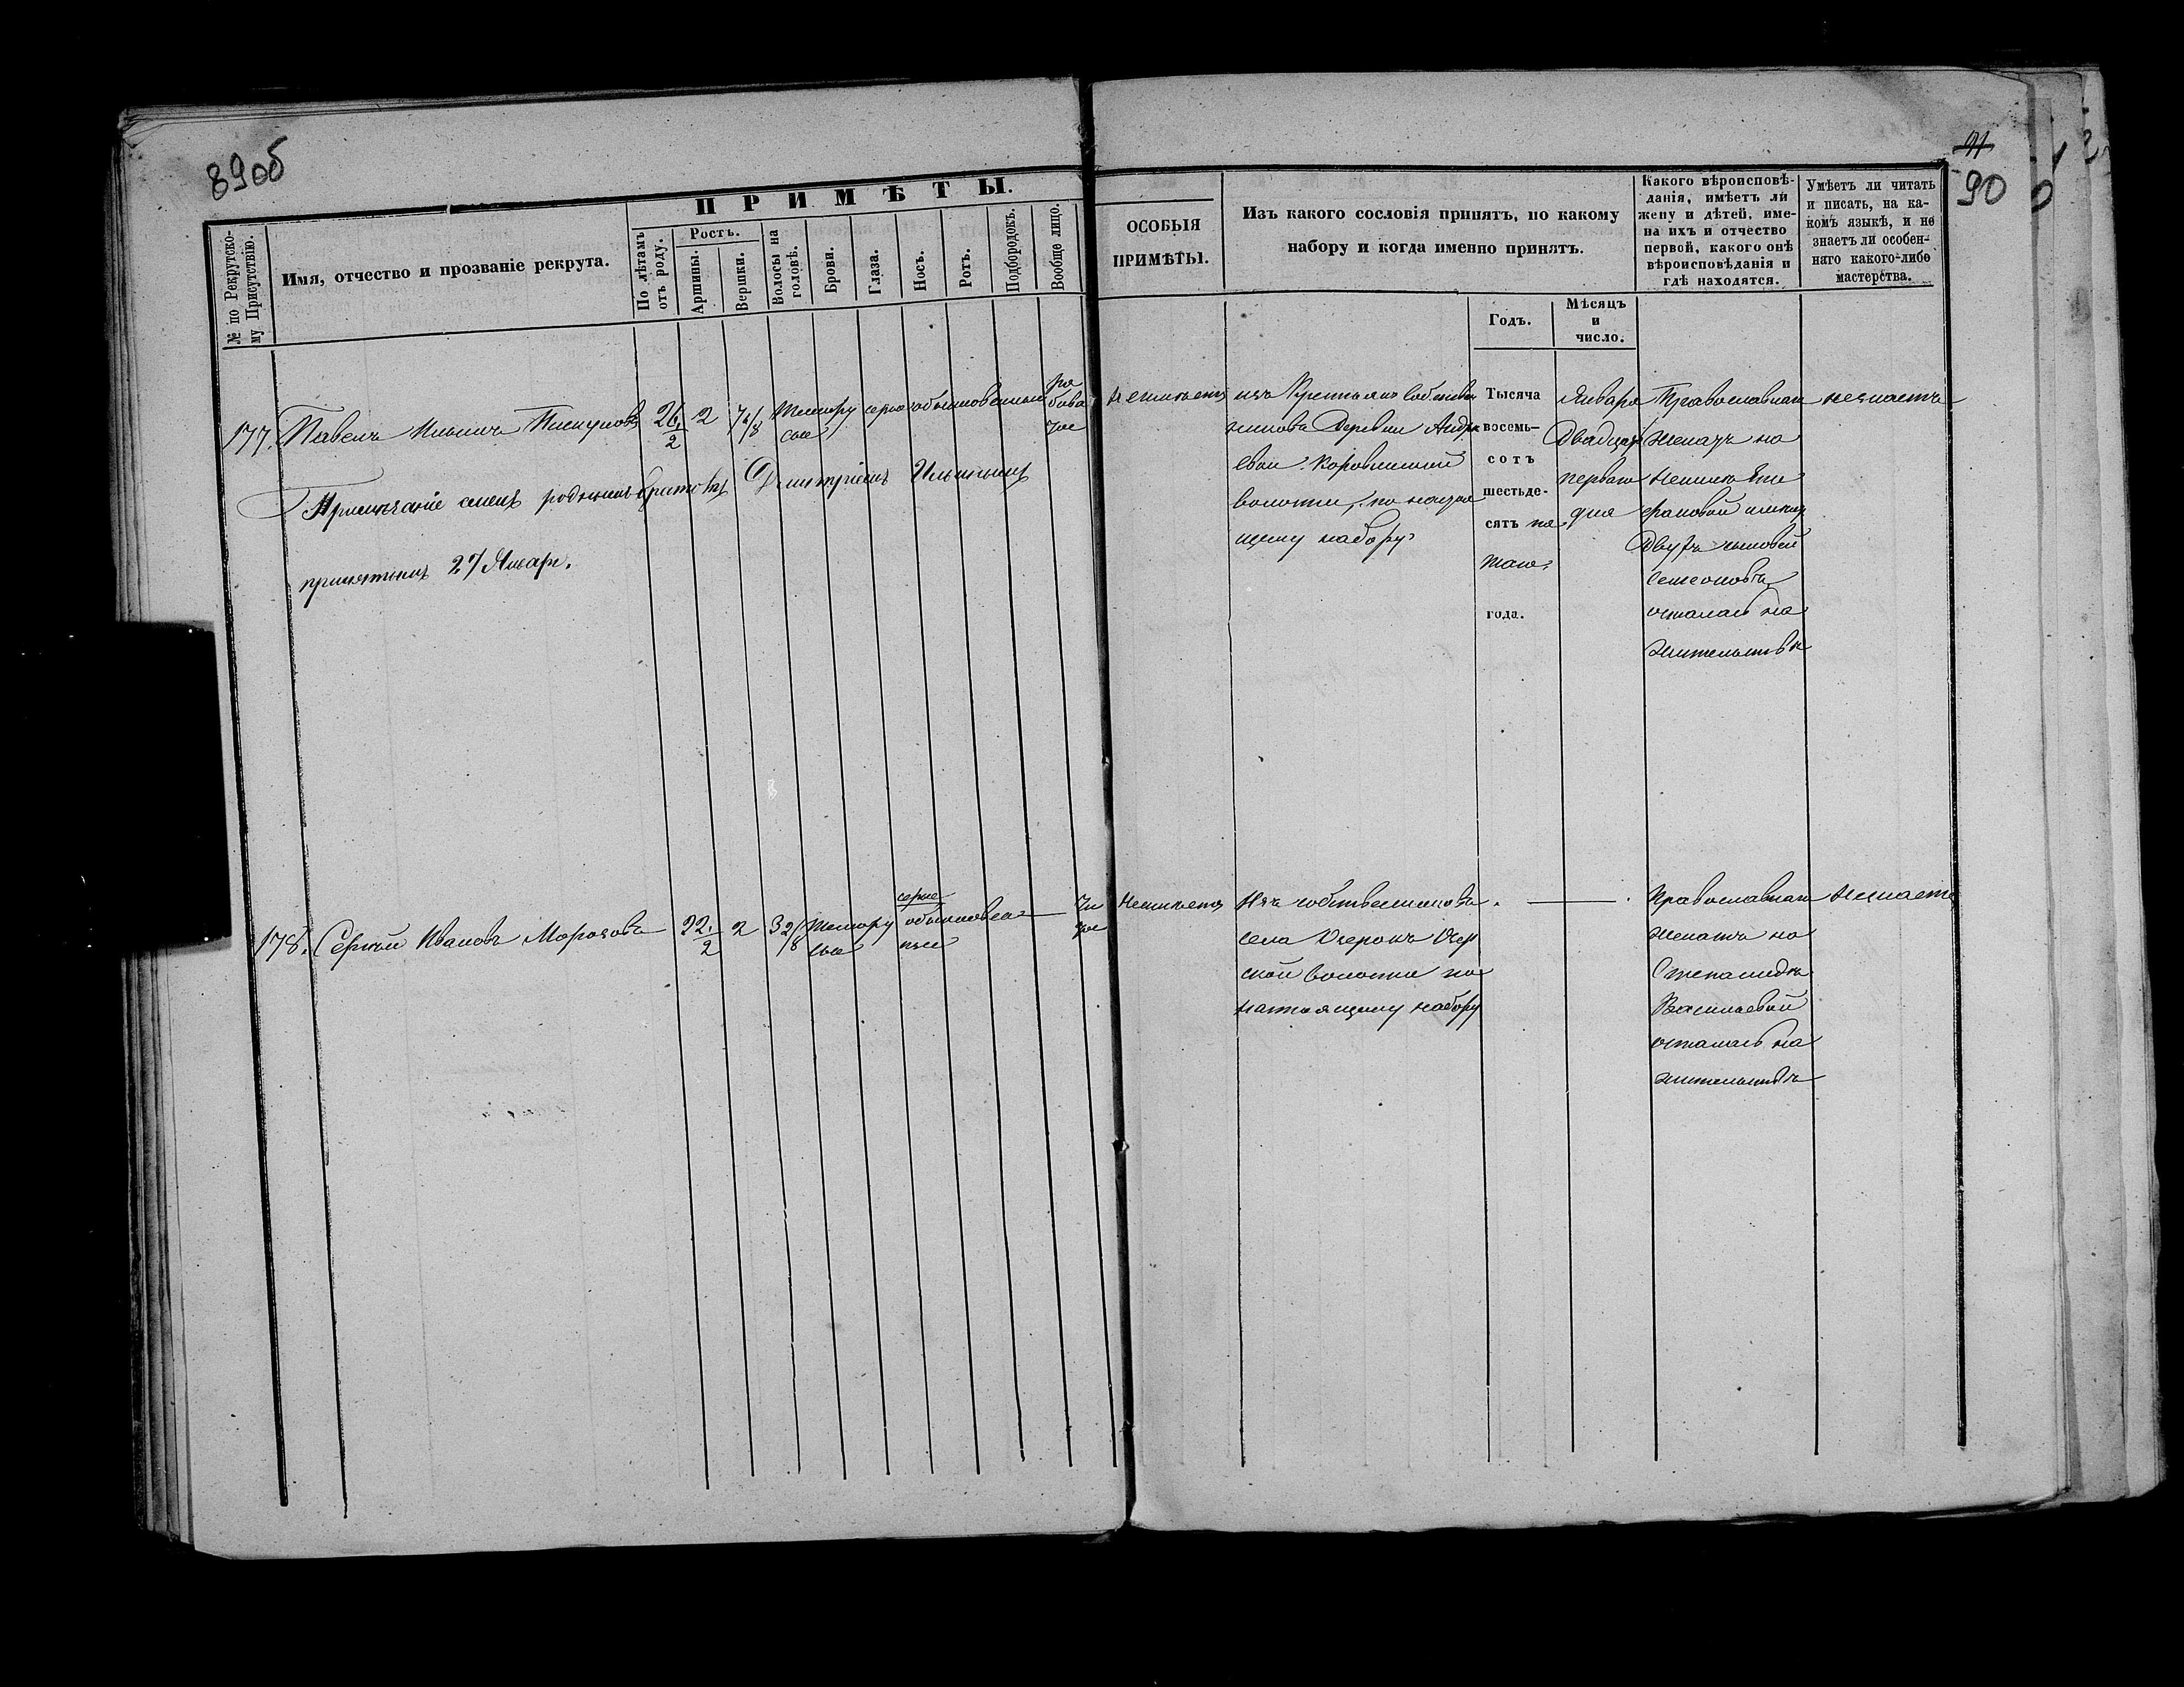 89об
91
90
ПРИМѢТЫ.
№ по Рекрутско-
му Присутствію.
Имя, отчество и прозваніе рекрута.
По лѣтамъ
отъ роду.
Ростъ.
Аршины.
Вершки.
Волосы на
головѣ.
Брови.
Глаза.
Носъ.
Ротъ.
Подбородокъ.
Вообще лицо.
ОСОБЫЯ
ПРИМѢТЫ.
Изъ какого сословія принятъ, по какому
набору и когда именно принятъ.
Годъ.
Мѣсяцъ
и
число.
Какого вѣроисповѣ-
данія, имѣетъ ли
жену и дѣтей, име-
на ихъ и отчество
первой, какого онѣ
вѣроисповѣданія и
гдѣ находятся.
Умѣетъ ли читать
и писать, на ка-
комъ языкѣ, и не
знаетъ ли особен-
наго какого-либо
мастерства.
177. Павелъ Ильинъ Пискуновъ
26 1/2
2
7 4/8
темору
сые
серые
обыкновенные
ря
бова
тое
Неимѣетъ
изъ Крестьянъ Собствен
никовъ Деревни Андре
евки Коровинской
волости, по настоя
щему набору
Тысяча
восемь-
сотъ
шестьде-
сятъ пя
таго
года.
Января
Двадцать
перваго
дня
Православнаго
женатъ на
фановой имѣетъ
Двухъ сыновей
осталась на
жительствѣ
незнаетъ
роднымъ братомъ Дмитріемъ Ильинымъ
принятымъ 27 Января.
178. Сергѣй Ивановъ Морозовъ
22 1/2
2
3 2/8
темору
сые
серые
обыкновен
ные
чи
тое
Неимѣетъ
Изъ собственниковъ
села Озерокъ Озер
ской волости по
настоящему набору
Православнаго
женатъ на
Степанидѣ
Васильевой
осталась на
жительствѣ
Незнаетъ